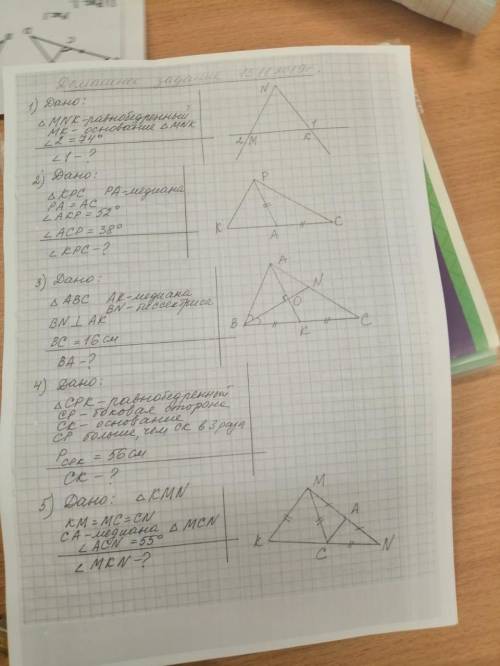 Домашнее задание 15.11.2019г.
1) Дано:
△MNK-равнобедренный
MK-основание △MNK
∠2=74°
∠1-?
N
2 M
1
K
2) Дано:
△KPC PA-медиана
PA=AC
∠AKP=52°
∠ACP=38°
∠KPC-?
P
K
A
C
3) Дано:
△ABC AK-медиана
BN-бессектриса
BN⊥AK
BC=16см
BA-?
A
N
O
B
K
C
4) Дано:
△CPK-равнобедренный
CP-боковая сторона
CK-основание
CP больше, чем CK в 3 раза
P CPK = 56см
CK-?
5) Дано: △KMN
KM=MC=CN
CA-медиана △MCN
∠ACN=55°
∠MKN-?
M
A
K
C
N